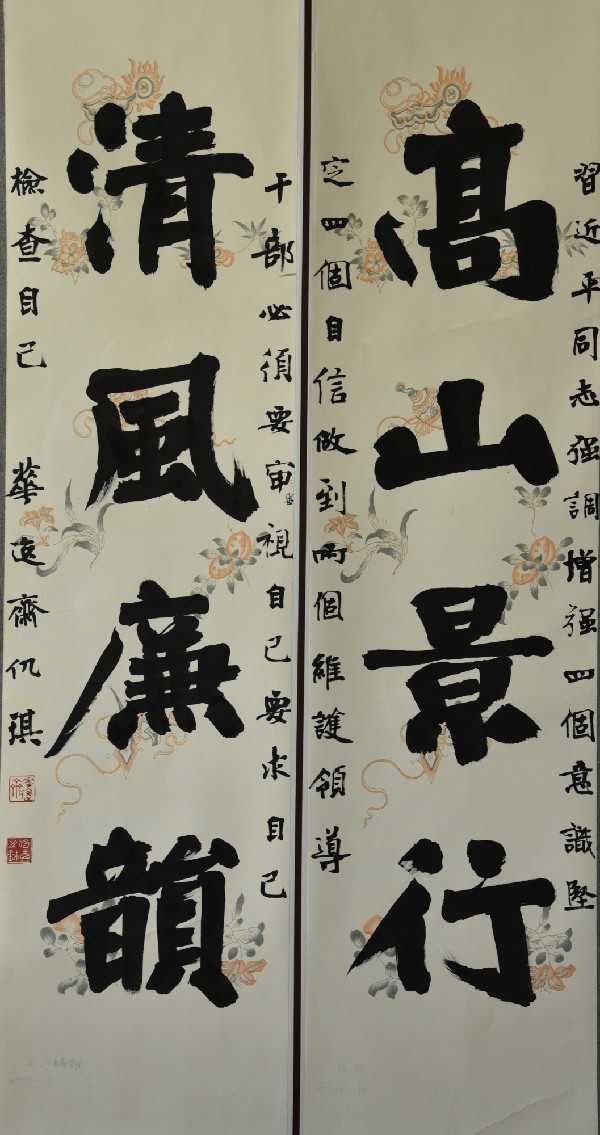 習近平同志强調增强四個意識堅
高山景行
定四個自信做到兩個維護領導
干部必須要审視自己要求自己
清風廉韻
檢查自己 華遠齋仉琪